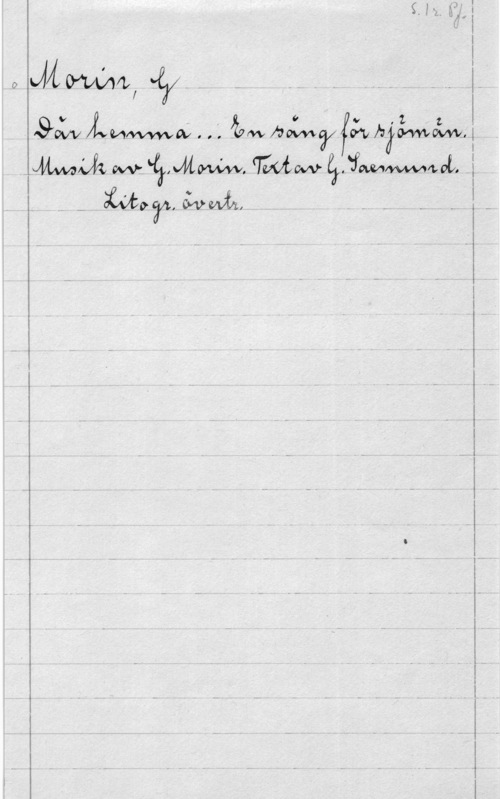 S. 12 Pf.
Morin, G
Där hemma... En sång för sjömän.
Musik av G. Morin. Text av G. Saemund.
Litogr. övertr.